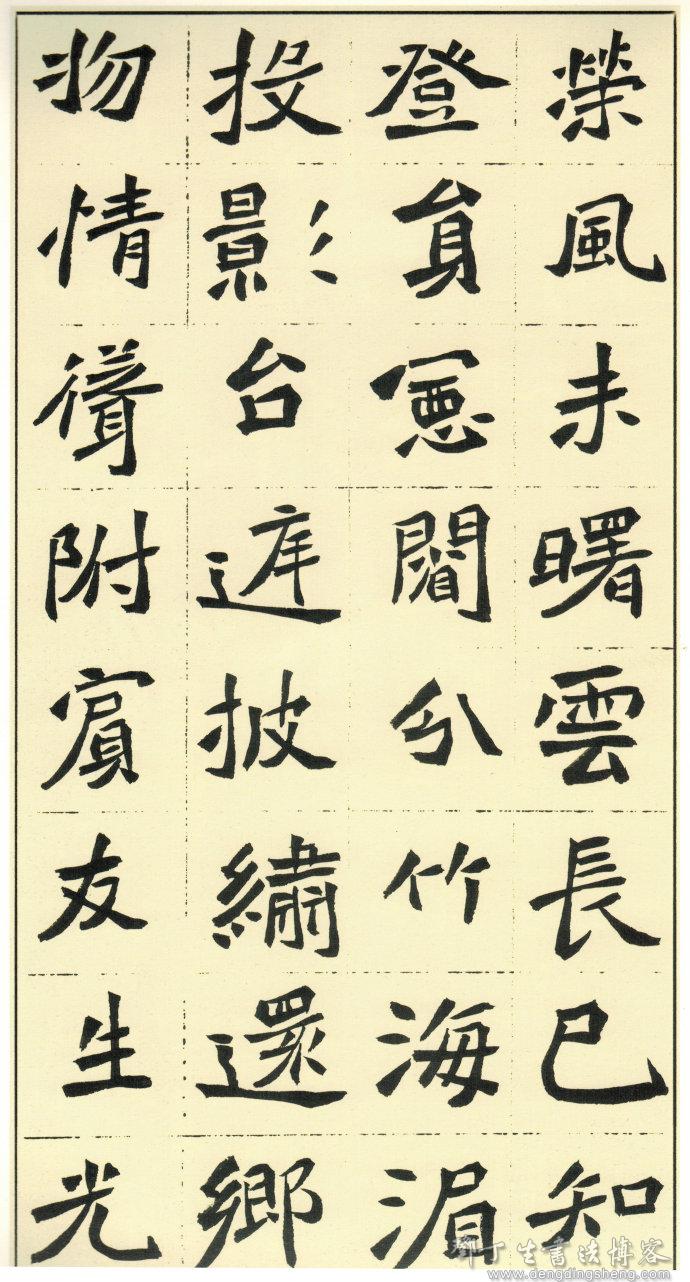 榮風未曙雲長已知
登身憲分竹海湄
投影台庭披繡還鄉
物情聳附賓友生光
鄧丁生書法博客
www.dengdingsheng.com